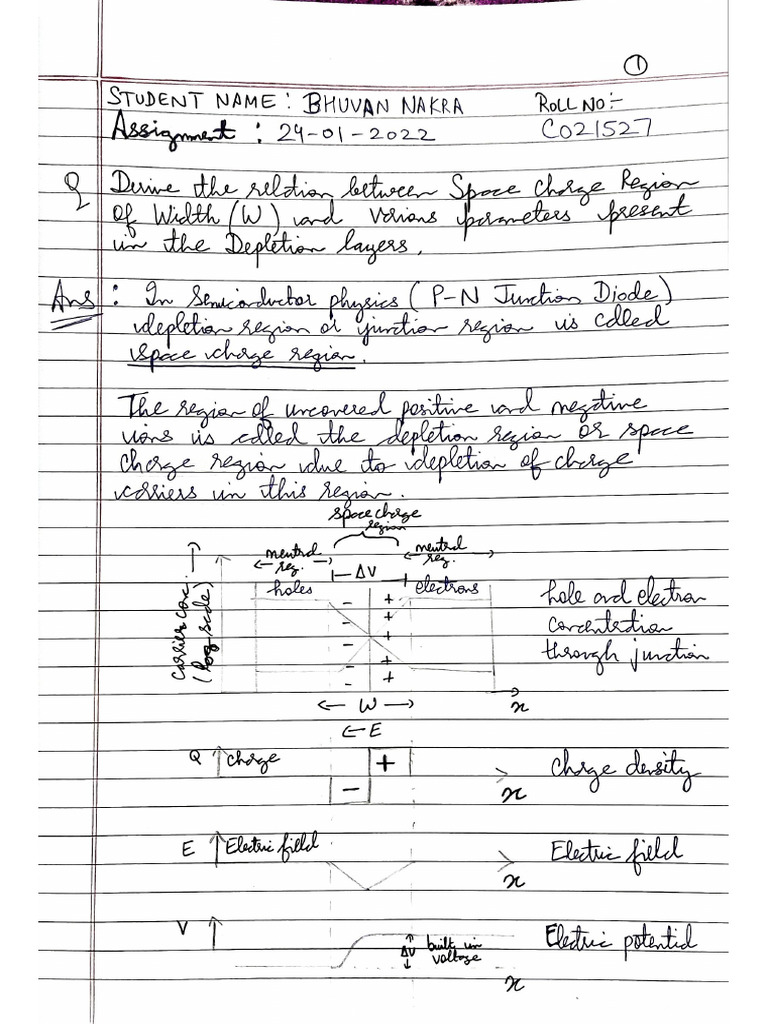 1
STUDENT NAME: BHUVAN NAKRA ROLL NO:-
Assignment : 24-01-2022 CO21527
Q Derive the relation between Space Charge Region
of Width (W) and various parameters present
in the Depletion layers.
Ans : In Semiconductor physics (P-N Junction Diode)
depletion region or junction region is called
space charge region.
The region of uncovered positive and negative
ions is called the depletion region or space
charge region due to depletion of charge
carriers in this region.
space charge
region
neutral
reg.
neutral
reg.
ΔV
holes
electrons
carrier conc.
(log scale)
- +
- +
- +
- +
- +
hole and electron
concentration
through junction
W
x
← E
Q ↑ charge + Charge density
-
x
E ↑ Electric field Electric field
x
V ↑ ΔV built in
voltage
Electric potential
x